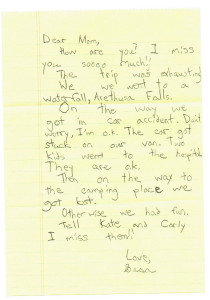 Dear Mom,
How are you? I miss
you soooo much!!
The trip was exhausting
We we went to a
waterfall, Arethusa Falls.
On the way we
got in car accident. Don't
worry, I'm o.k. The car got
stuck on our van. Two
kids went to the hospital
They are o.k.
Then on the way to
the camping place we
got lost.
Otherwise we had fun.
Tell Kate and Carly
I miss them!!
Love,
Sean